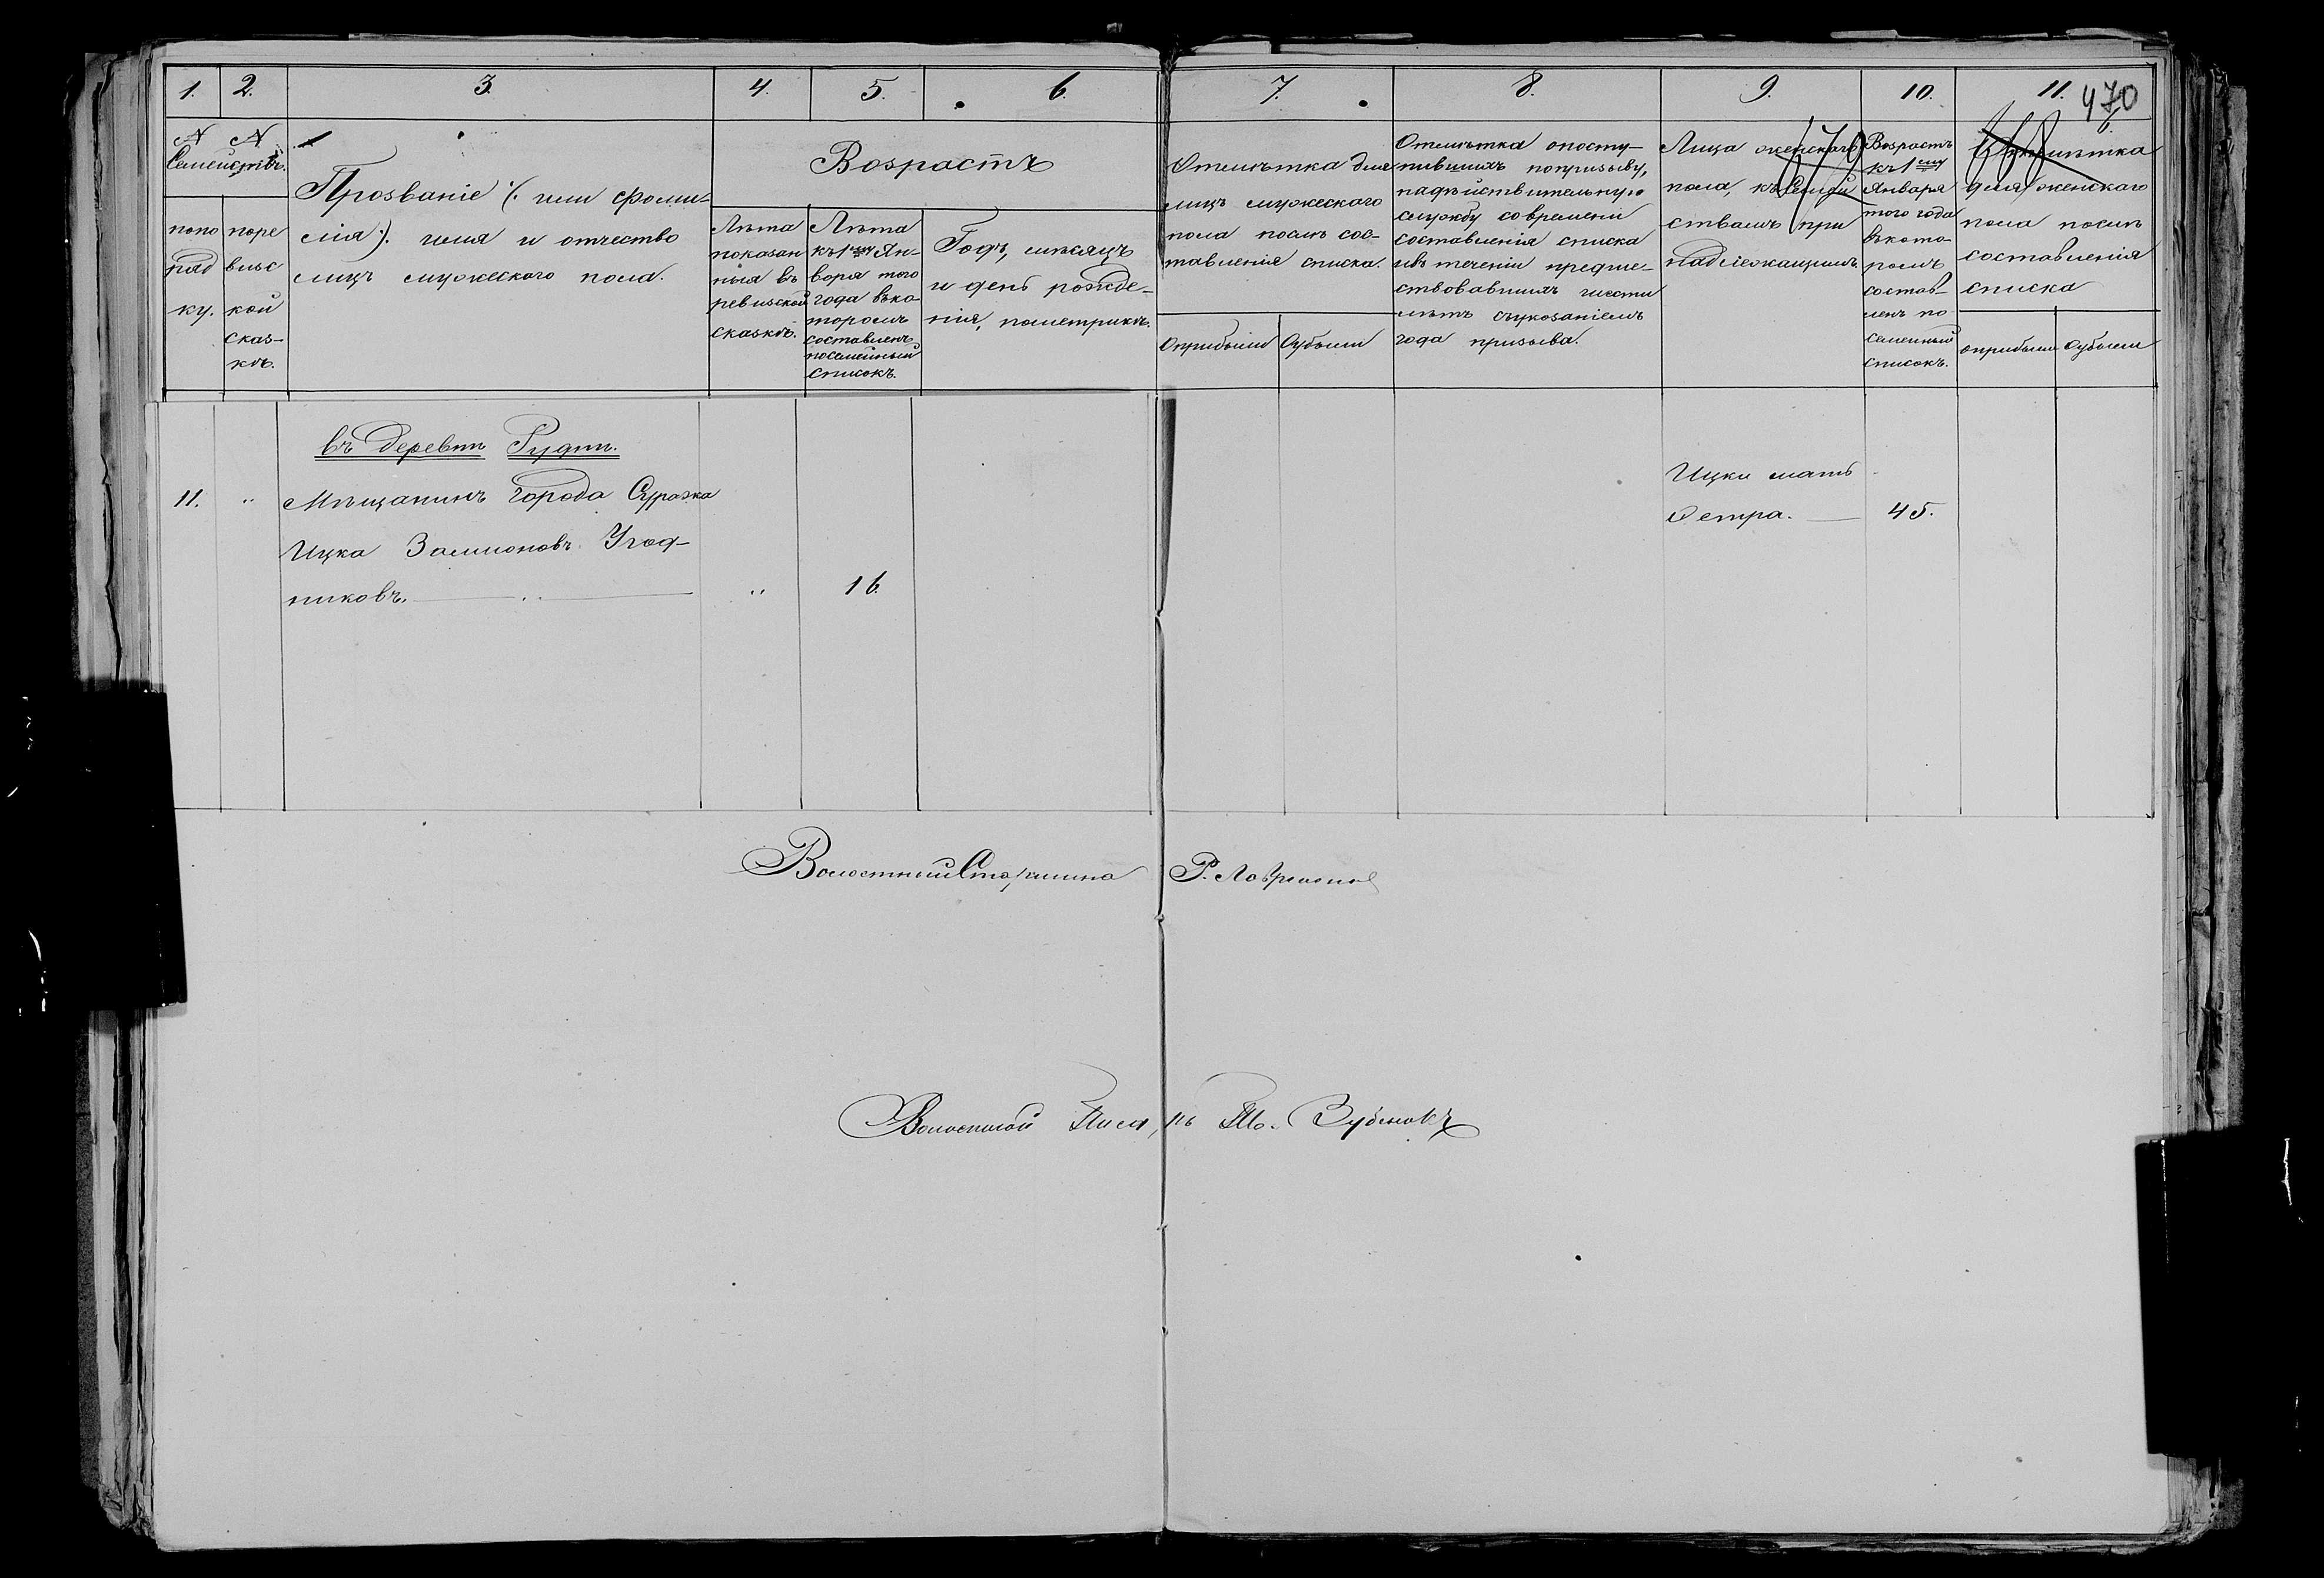 1. 2. 3. 4. 5. 6. 7. 8. 9. 10. 11. 470
N N
Семействъ.
попо
ряд
ку.
поре
визс
кой
сказ-
кѣ.
Прозваніе (: или фоми-
лія:). имя и отчество
лицъ мужескаго пола.
Возрастъ
Лѣта
показан
ныя въ
ревизской
сказкѣ.
Лѣта
къ 1му Ян-
воря того
года въко-
торомъ
составленъ
посемейный
списокъ.
Годъ, мѣсяцъ
и день рожде-
нія, пометрикѣ.
Отмѣтка для
лицъ мужескаго
пола послѣ сос-
тавленія списка.
Оприбыли Оубыли
Отмѣтка опосту-
пившихъ попризыву,
надѣйствительную
службу современи
составленія списка
ивъ теченіи предше-
ствовавшихъ шести
лѣтъ съуказаніемъ
года призыва.
Лица женскаго
пола, къ Семей
ствамъ при
надлежащимъ.
Возрастъ
къ 1му
Января
того года
въкото-
ромъ
состав-
ленъ по-
семейный
списокъ.
Отмѣтка
для женскаго
пола послѣ
составленія
списка
оприбыли оубыли
въ Деревнѣ Руднѣ.
11. " Мѣщанинъ города Суража
Ицка Залмоновъ Угод-
никовъ. " 16.
Ицки мать
Эстра. 45.
Волостный Старшина Р. Лавреновъ
Волостной Писарь Зубковъ